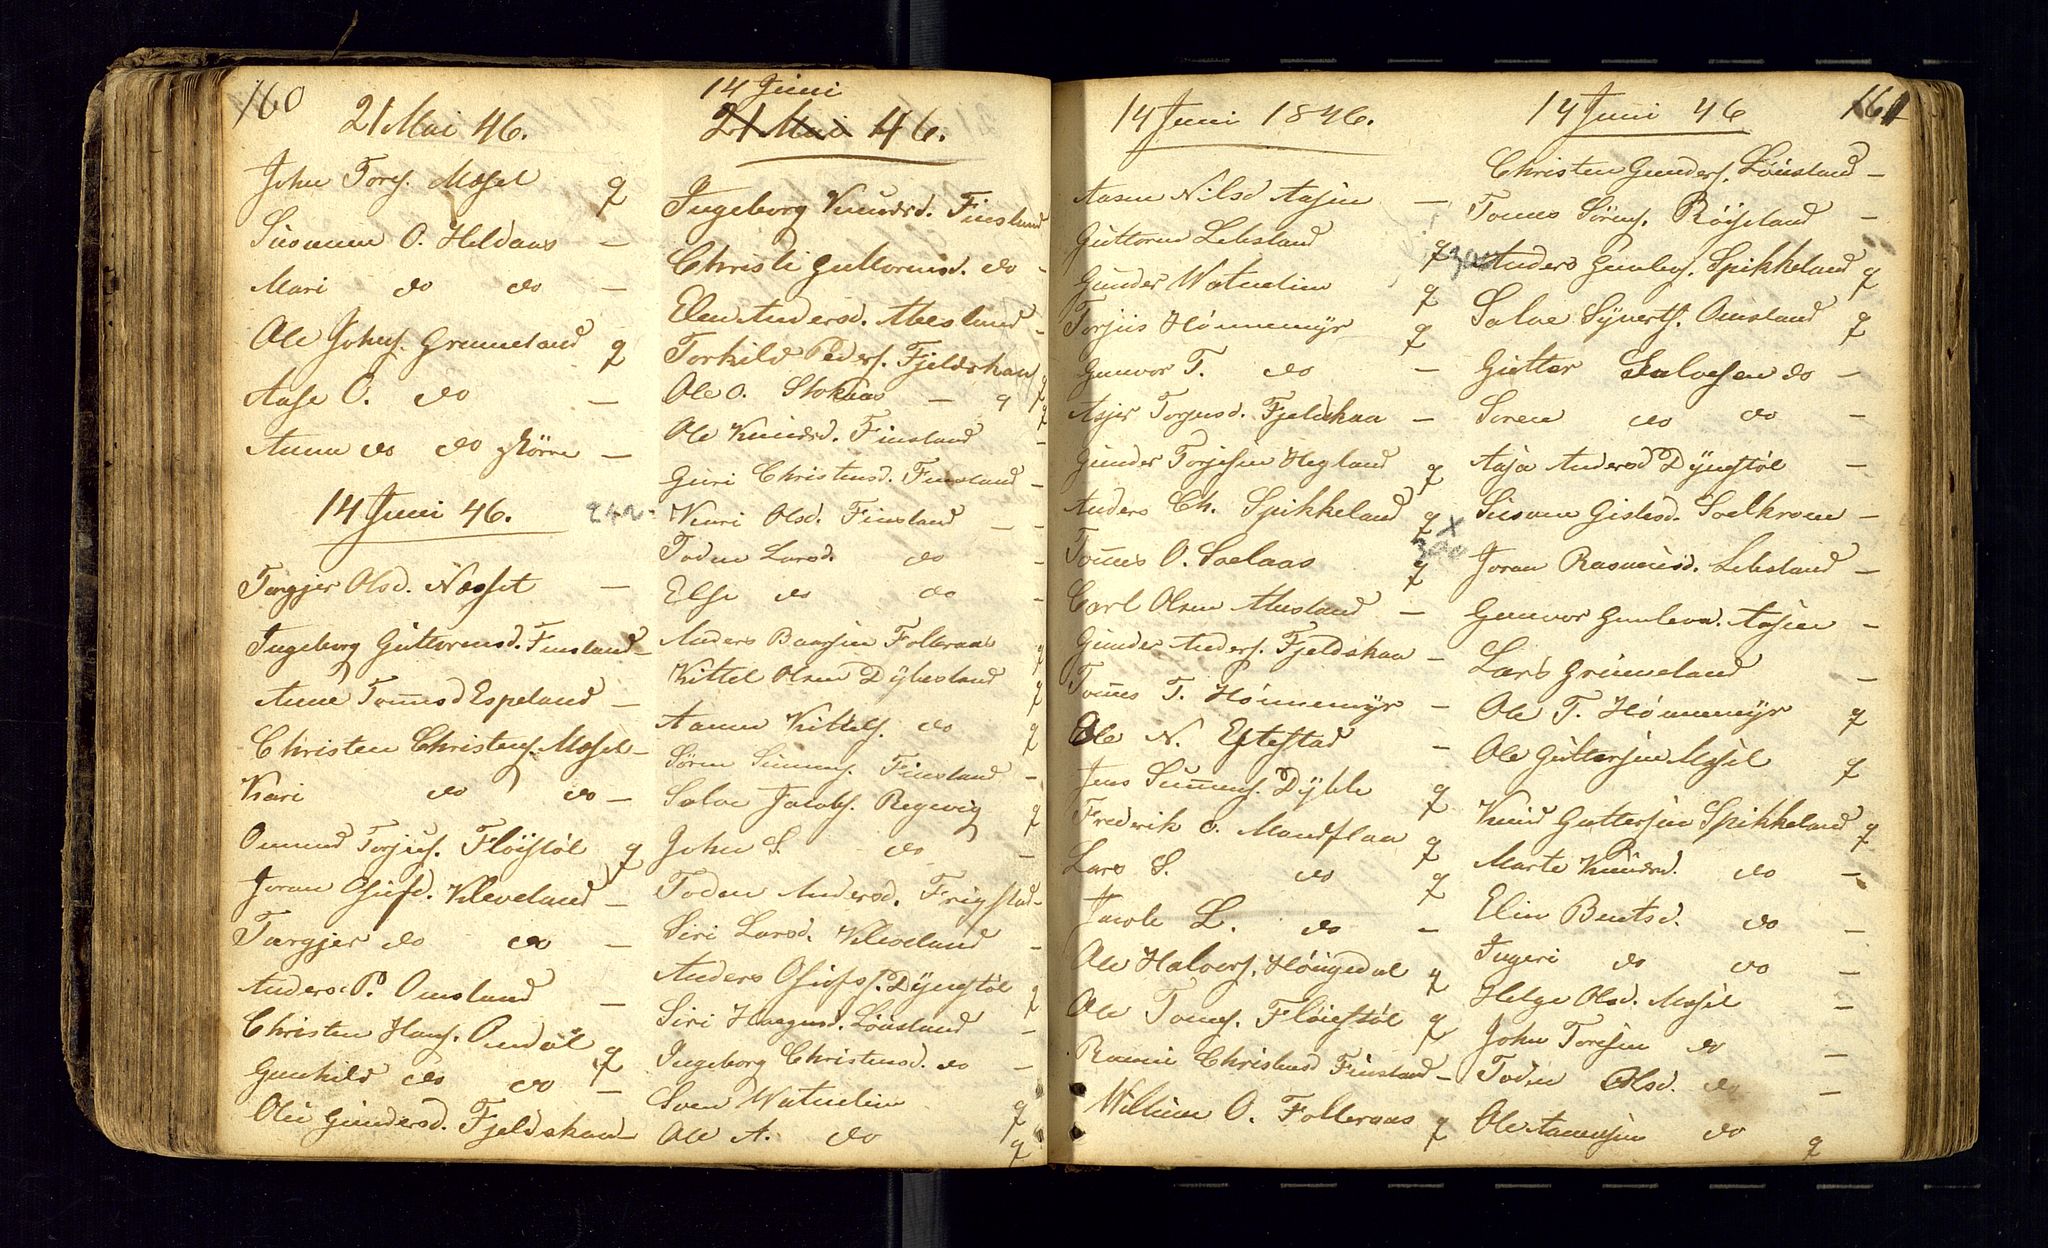 160
21 Mai 46.
John Tores. Mosel q
Susanne O. Heldaas –
Mari do do –
Ole Johns. Grimeland q
Aase O. do –
Anne do do större –
14 Juni 46. 242
Targjer Olsd. Nosset –
Ingeborg Guttormsd. Finsland –
Anne Tomesd Espeland –
Christen Christens. Mosel –
Kari do do –
Omund Torjus. Flöistöl q
Joran Osufsd. Kleveland –
Targjer do do –
Anders P. Omsland –
Christen Hans. Omdal q
Gunhild do do –
Oli Gundersd. Fjeldskaa –
14 Juni
21 Mai 46.
Ingeborg Knudsd. Finsland
Christi Guttormsd. do –
Elen Andersd. Abesland –
Torkild Peders. Fjeldskaa q
Ole O. Stokaas – q q
Ole Knudsd. Finsland –
Guri Christensd. Finsland –
Kari Olsd. Finsland – –
Toden Larsd. do –
Else do do –
Anders Baarsen Folleraas q
Kittel Olsen Dyblesland q
Aanen Kittels. do q
Sören Simens. Finsland –
Salve Jacobs. Regevig q
John S. do –
Toden Andersd. Frigstad –
Siri Larsd. Kleveland –
Anders Osufs. Dyngstöl q
Siri Haagensd. Lönsland –
Ingeborg Christensd. do –
Sven Watnelien q
Ole A. do q
14 Juni 1846.
Aasne Nilsd Aasen –
Guttorm Lebsland q
Gunder Watnelien q
Torjus Hönnemyr q
Gunvor T. do –
Asjer Torjusd. Fjeldskaa –
Gunder Torjesen Hegland q
Anders Ch. Spikkeland q
Tomes O. Soelaas q
Carl Olsen Abesland –
Gunder Anders. Fjeldskaa –
Tomes T. Hönnemyr –
Ole N. Eftestad –
Jens Simens. Dyble q
Frederik O. Mandflaa q
Lars S. do q
Jacob L. do –
Ole Halvors. Höugedal q
Ole Tomes. Flöiestöl q
Rami Christensd Finsland –
William O. Folleraas q
14 Juni 46 161
Christen Gunders. Lönsland –
Tomes Sörens. Röiseland –
300 Anders Gunlefs. Spikkeland q
Salve Syverts. Omsland q
Gutter Salvesen do –
Soren do do –
Aasa Andersd Dyngstöl –
Susanne Gislesd. Solkroen –
x
300 Joran Rasmusd. Lebsland –
Gunvor Gunlevsd. Aasen –
Lars Grimeland –
Ole T. Hönnemyr q
Ole Guttorsen Mosel q
Knud Guttorsen Spikkeland q
Marte Knudsd. do –
Elin Bentsd. do –
Ingeri do do –
Helge Olsd. Mosel –
John Toresen do –
Toden Olsd. do –
Ole Aanensen do q